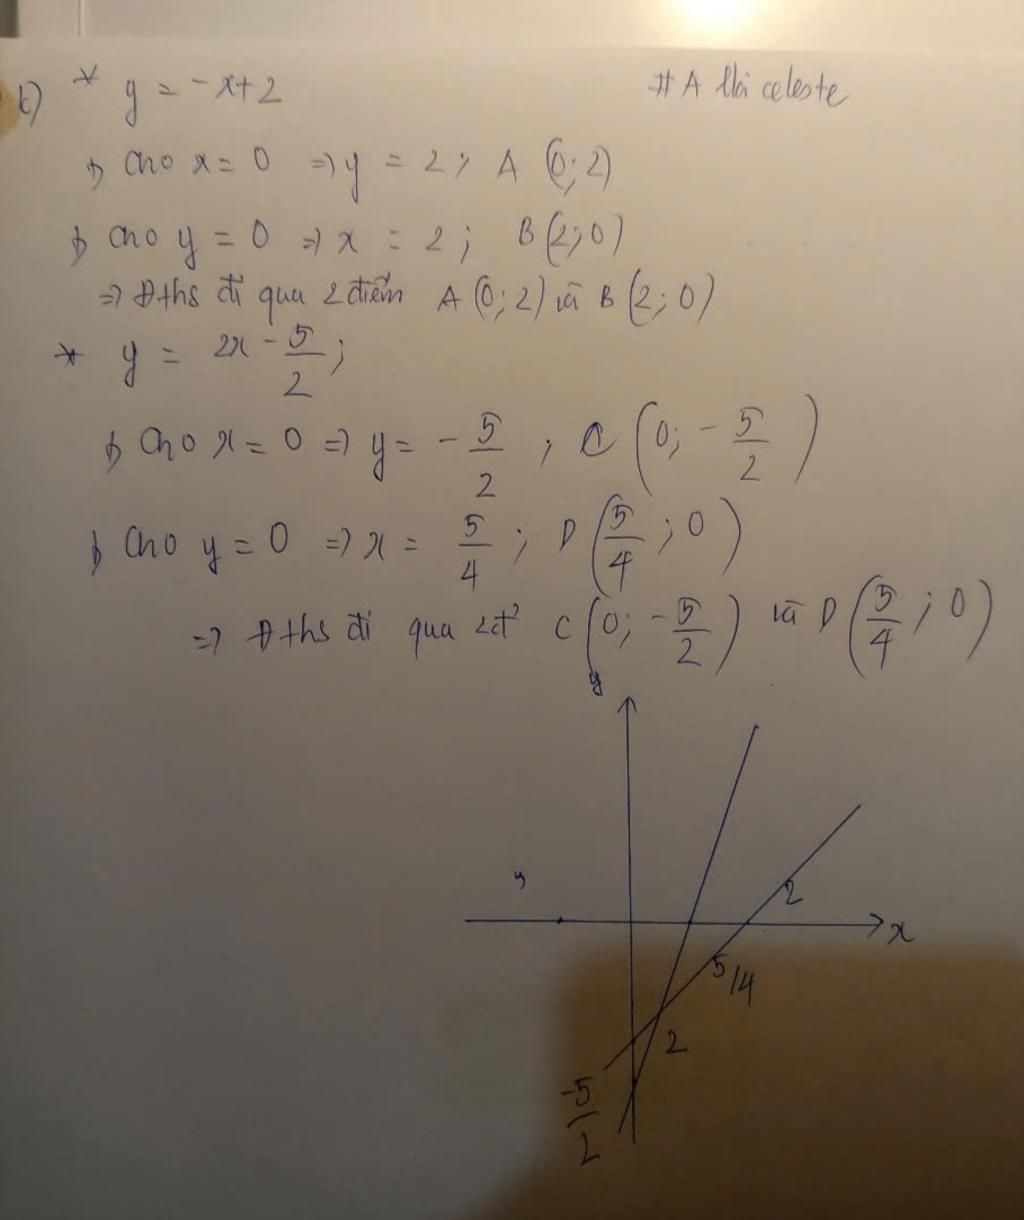 c) * y = -x+2
# A Hài celeste
+) Cho x = 0 => y = 2; A (0; 2)
+) Cho y = 0 => x = 2; B (2; 0)
=> Đths đi qua 2 điểm A (0; 2) và B (2; 0)
* y = 2x - 5/2;
+) Cho x = 0 => y = - 5/2, C (0; - 5/2)
+) Cho y = 0 => x = 5/4; D (5/4; 0)
=> Đths đi qua 2đ' C (0; -5/2) và D (5/4; 0)
y
2
x
5/4
2
-5/2